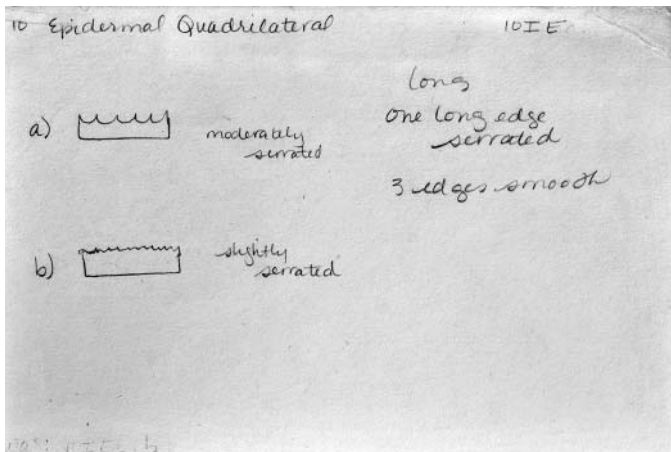 10 Epidermal Quadrilateral 10IE
long
one long edge
serrated
3 edges smooth
a) moderately
serrated
b) slightly
serrated